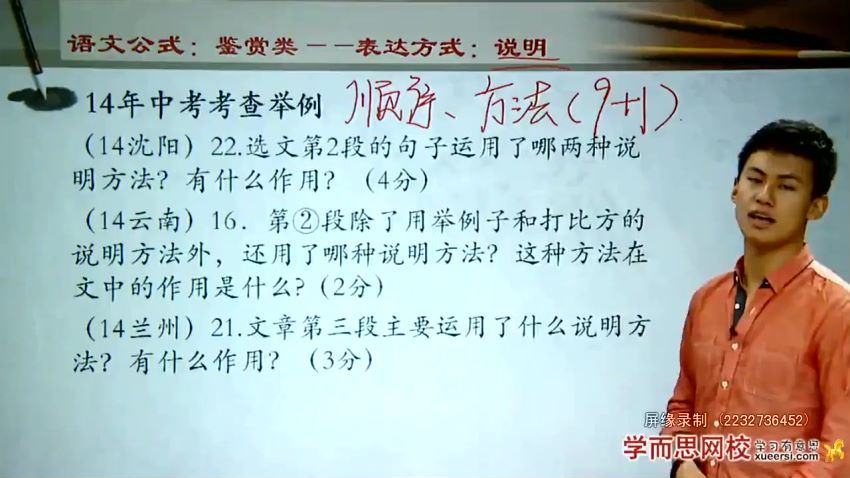 语文公式：鉴赏类－－表达方式：说明
14年中考考查举例 顺序、方法（9+1）
（14沈阳）22.选文第2段的句子运用了哪两种说
明方法？有什么作用？（4分）
（14云南）16．第②段除了用举例子和打比方的
说明方法外，还用了哪种说明方法？这种方法在
文中的作用是什么？（2分）
（14兰州）21.文章第三段主要运用了什么说明方
法？有什么作用？（3分）
屏缘录制（2232736452）
学而思网校 学习有意思
xueersi.com